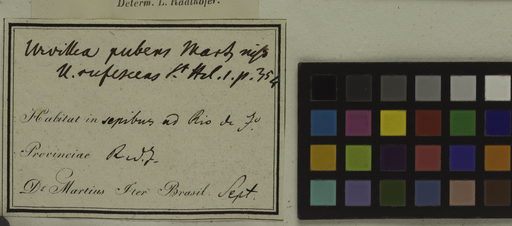 Determ. L. Radlkofer.
Urvillea pubens Mart
U. rufescens St Hil. 1. p. 354
Habitat in sepibus ad Rio de J.
Provinciae R. d. J.
Dr. Martius Iter Brasil. Sept.